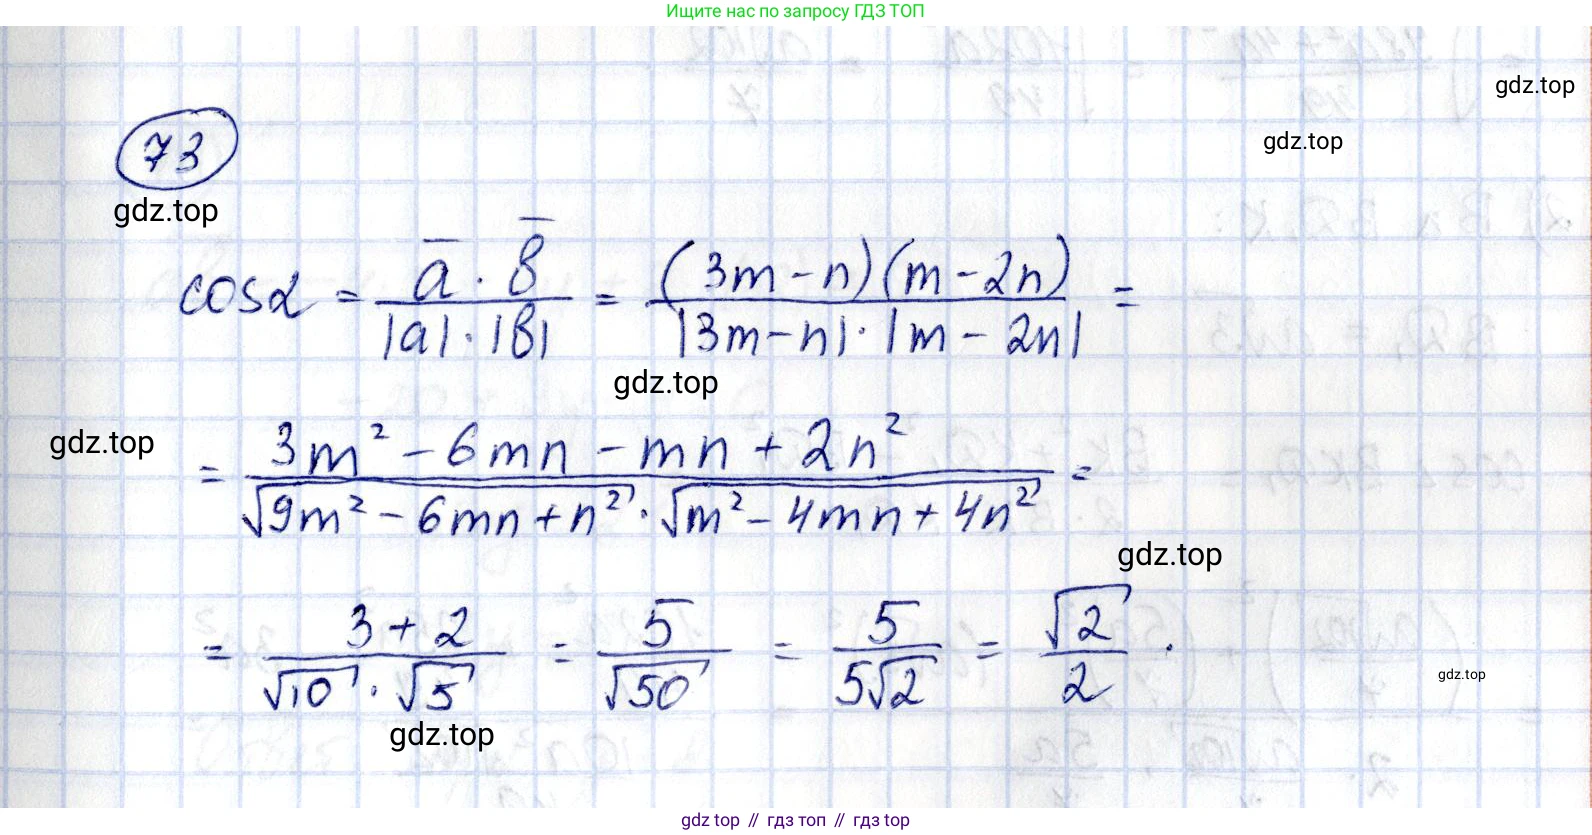 Ищите нас по запросу ГДЗ ТОП
gdz.top
gdz.top
73
gdz.top
cos α = (a̅ · b̅) / (|a| · |b|) = ((3m − n)(m − 2n)) / (|3m − n| · |m − 2n|) =
gdz.top
gdz.top
= (3m² − 6mn − mn + 2n²) / (√(9m² − 6mn + n²) · √(m² − 4mn + 4n²)) =
gdz.top
= (3 + 2) / (√10 · √5) = 5 / √50 = 5 / (5√2) = √2 / 2 .
gdz.top
gdz.top
gdz top // гдз топ // гдз top